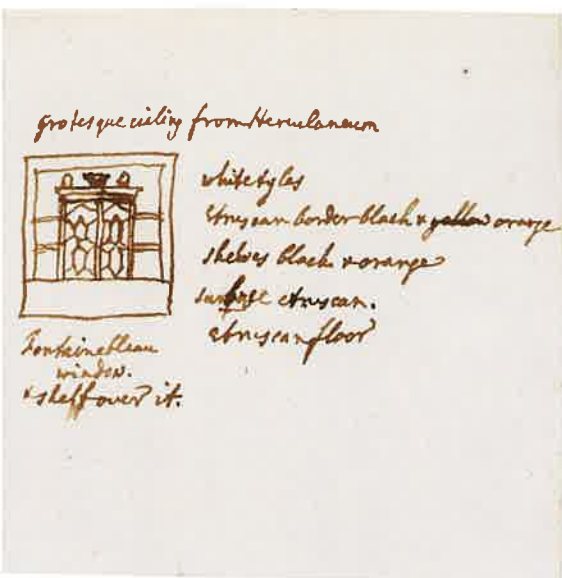 grotesque ceiling from Herculaneum
white tyles
etruscan border black & yellow orange
shelves black & orange
etruscan.
etruscan floor
Fontainebleau
window.
& shelf over it.